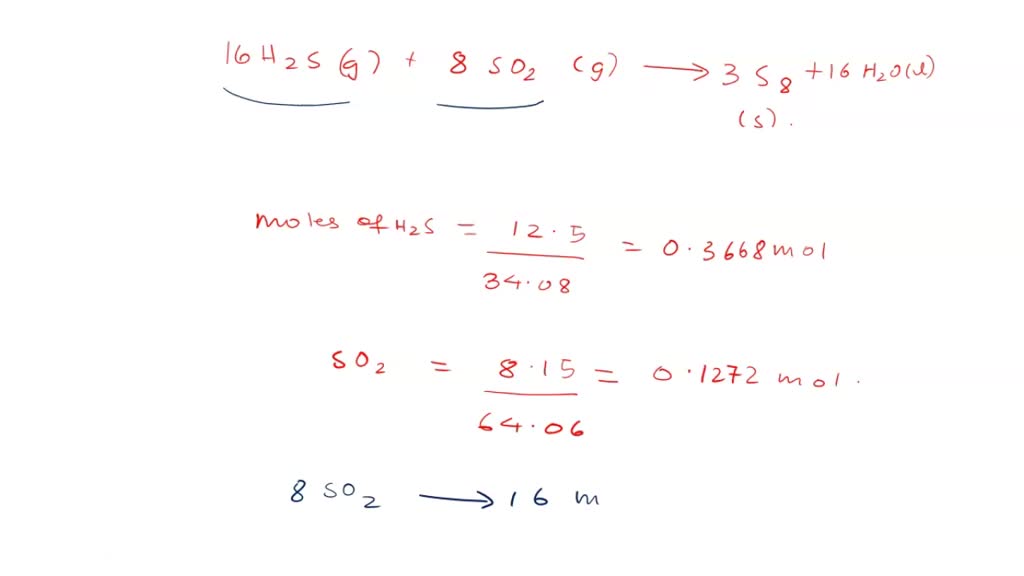 16 H2S (g) + 8 SO2 (g) ⟶ 3 S8 + 16 H2O(l)
(s).
moles of H2S = 12.5 / 34.08 = 0.3668 mol
SO2 = 8.15 / 64.06 = 0.1272 mol.
8 SO2 ⟶ 16 m